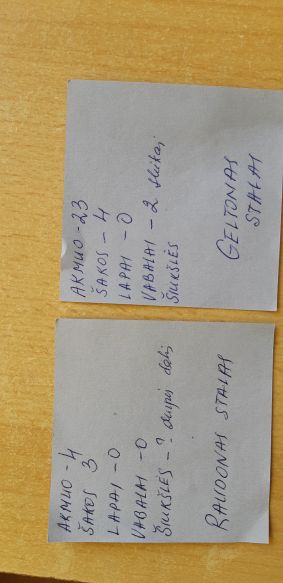 AKMUO - 23
ŠAKOS - 4
LAPAI - 0
VABALAI - 2
ŠIUKŠLĖS
GELTONAS
STALAI
AKMUO - 4
ŠAKOS 3
LAPAI - 0
VABALAI - 0
ŠIUKŠLĖS - ?
RAUDONAS STALAS